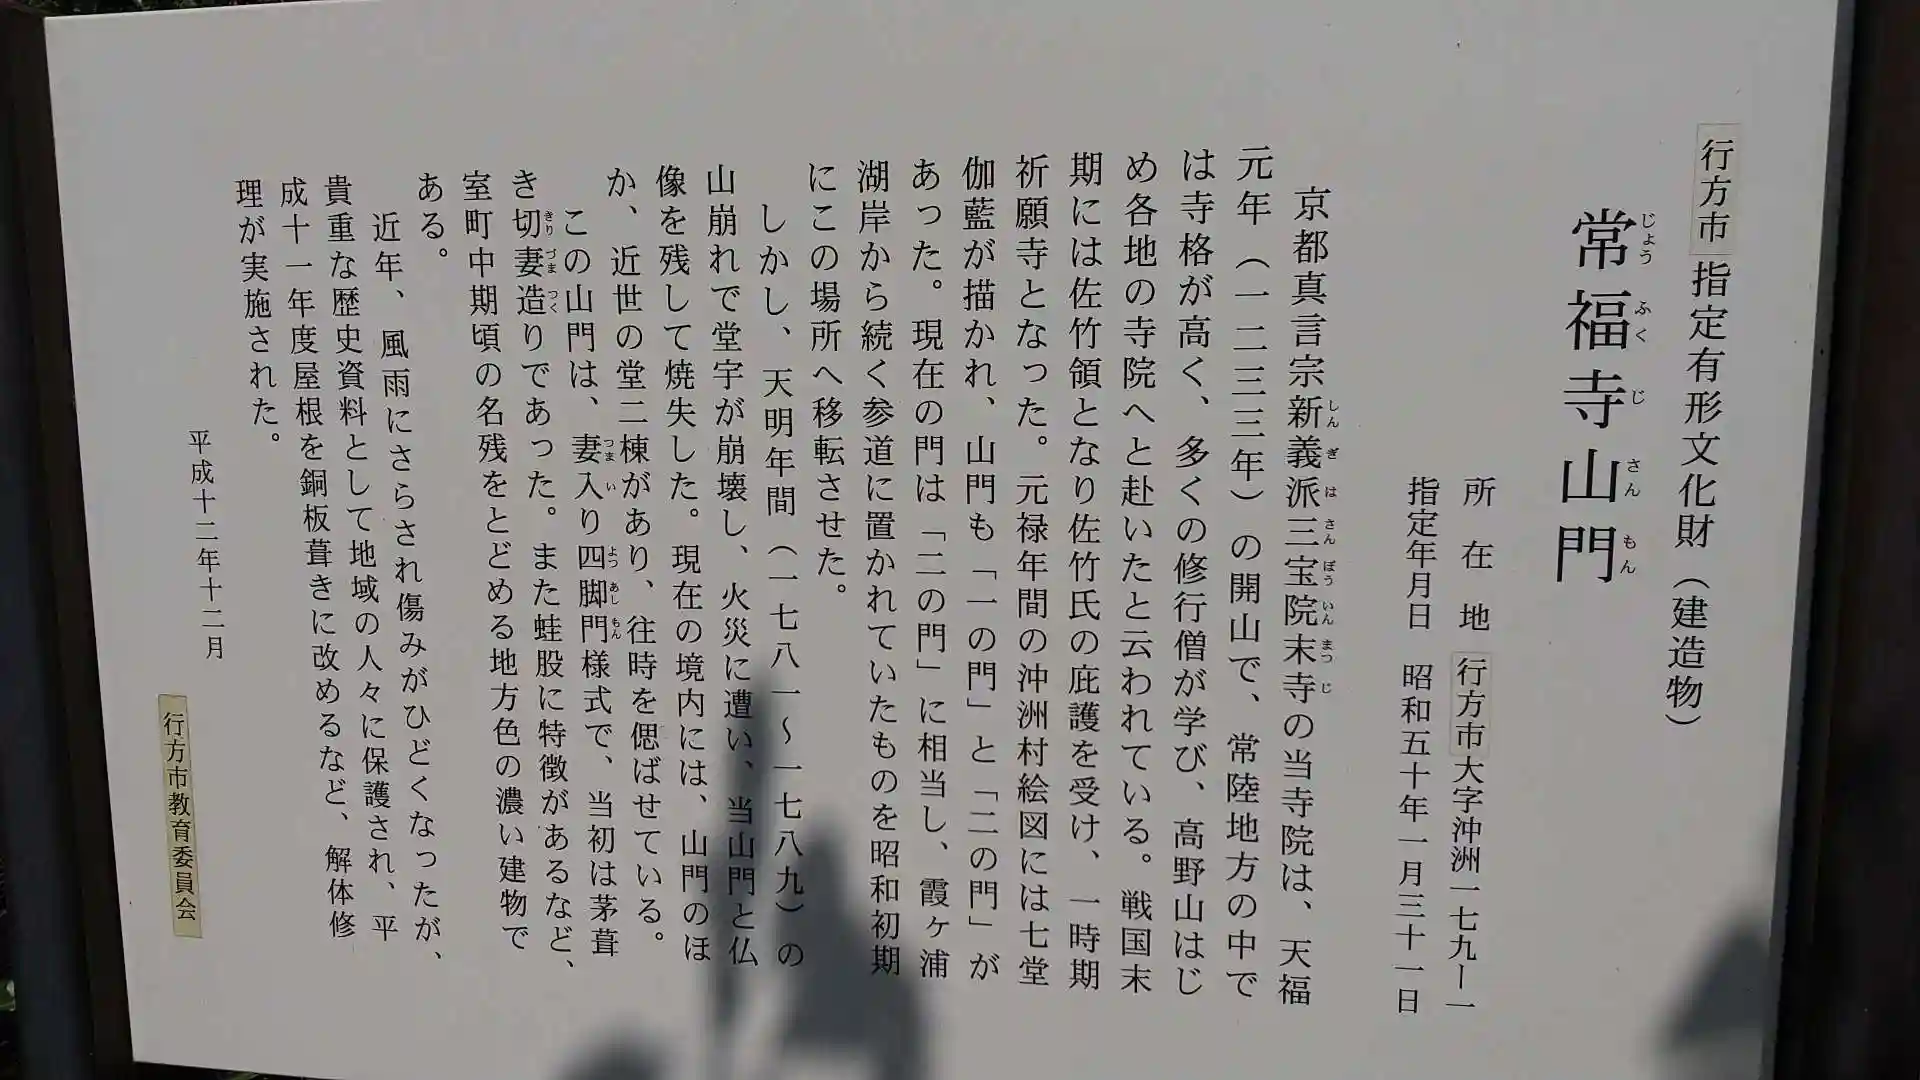 行方市指定有形文化財（建造物）
常福寺山門
じょうふくじさんもん
所在地 行方市大字沖洲一七九ー一
指定年月日 昭和五十年一月三十一日
京都真言宗新義派三宝院末寺の当寺院は、天福
しんぎはさんぼういんまつじ
元年（一二三三年）の開山で、常陸地方の中で
は寺格が高く、多くの修行僧が学び、高野山はじ
め各地の寺院へと赴いたと云われている。戦国末
期には佐竹領となり佐竹氏の庇護を受け、一時期
祈願寺となった。元禄年間の沖洲村絵図には七堂
伽藍が描かれ、山門も「一の門」と「二の門」が
あった。現在の門は「二の門」に相当し、霞ヶ浦
湖岸から続く参道に置かれていたものを昭和初期
にこの場所へ移転させた。
しかし、天明年間（一七八一〜一七八九）の
山崩れで堂宇が崩壊し、火災に遭い、当山門と仏
像を残して焼失した。現在の境内には、山門のほ
か、近世の堂二棟があり、往時を偲ばせている。
この山門は、妻入り四脚門様式で、当初は茅葺
つまいよつあしもん
き切妻造りであった。また蛙股に特徴があるなど、
きりづまつく
室町中期頃の名残をとどめる地方色の濃い建物で
ある。
近年、風雨にさらされ傷みがひどくなったが、
貴重な歴史資料として地域の人々に保護され、平
成十一年度屋根を銅板葺きに改めるなど、解体修
理が実施された。
平成十二年十二月
行方市教育委員会